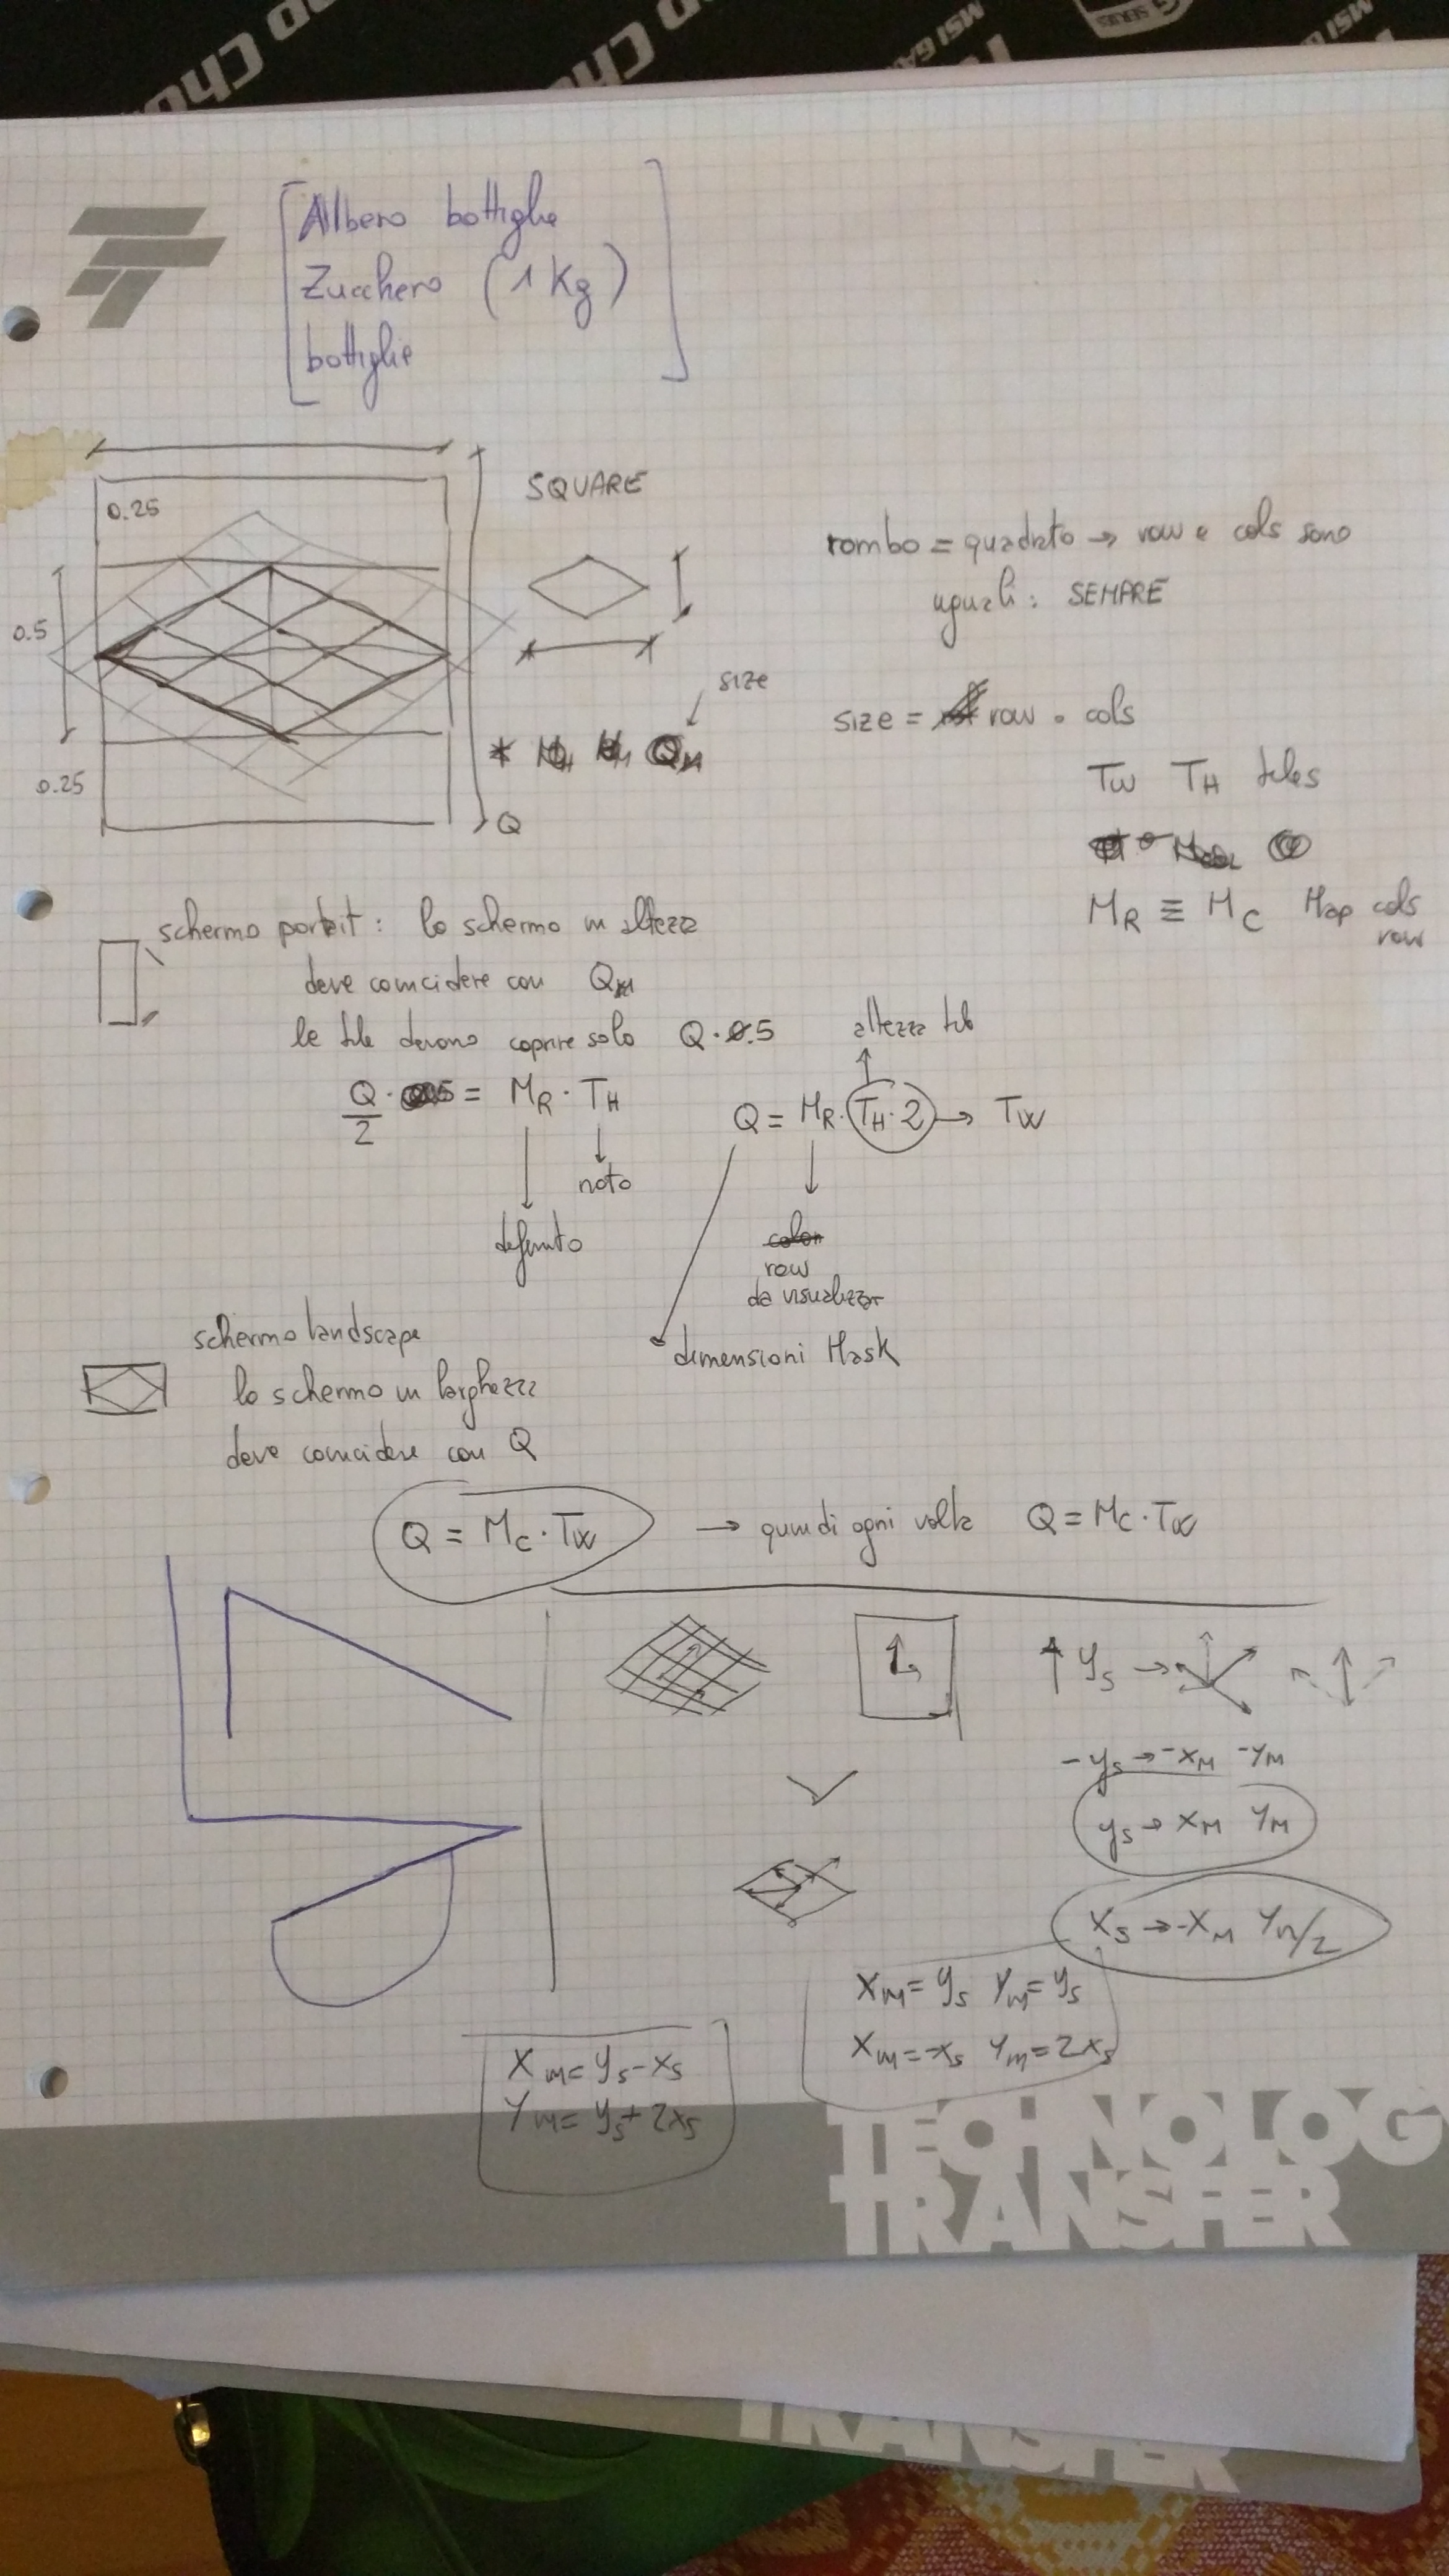 [Albero bottiglie
Zucchero (1 Kg)
bottiglie]
0.25
0.5
0.25
Q
SQUARE
size
rombo = quadrato → row e cols sono
uguali: SEMPRE
size = row . cols
TW TH tiles
MR ≡ MC Map cols
row
schermo portrit: lo schermo in altezza
deve coincidere con Q
le tile devono coprire solo Q · 0.5
Q/2 = MR · TH
noto
definito
altezza tile
Q = MR · (TH · 2) → TW
row
da visualizzar
dimensioni Mask
schermo landscape
lo schermo in larghezza
deve coincidere con Q
Q = MC · TW → quindi ogni volta Q = MC · TW
ys →
-ys → -XM -YM
ys → XM YM
Xs → -XM YM/2
XM = ys YM = ys
XM = -xs YM = 2xs
XM = ys - xs
YM = ys + 2xs
TECHNOLOG
TRANSFER
TRANSFER
MSI GA
SERIES